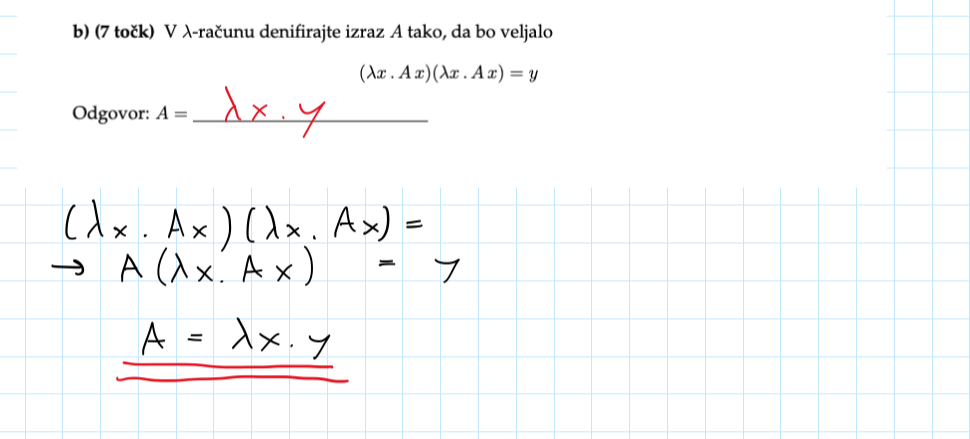 b) (7 točk) V λ-računu denifirajte izraz A tako, da bo veljalo
(λx . A x)(λx . A x) = y
Odgovor: A = λx . y
(λx . Ax)(λx . Ax) =
→ A(λx. Ax) = y
A = λx . y